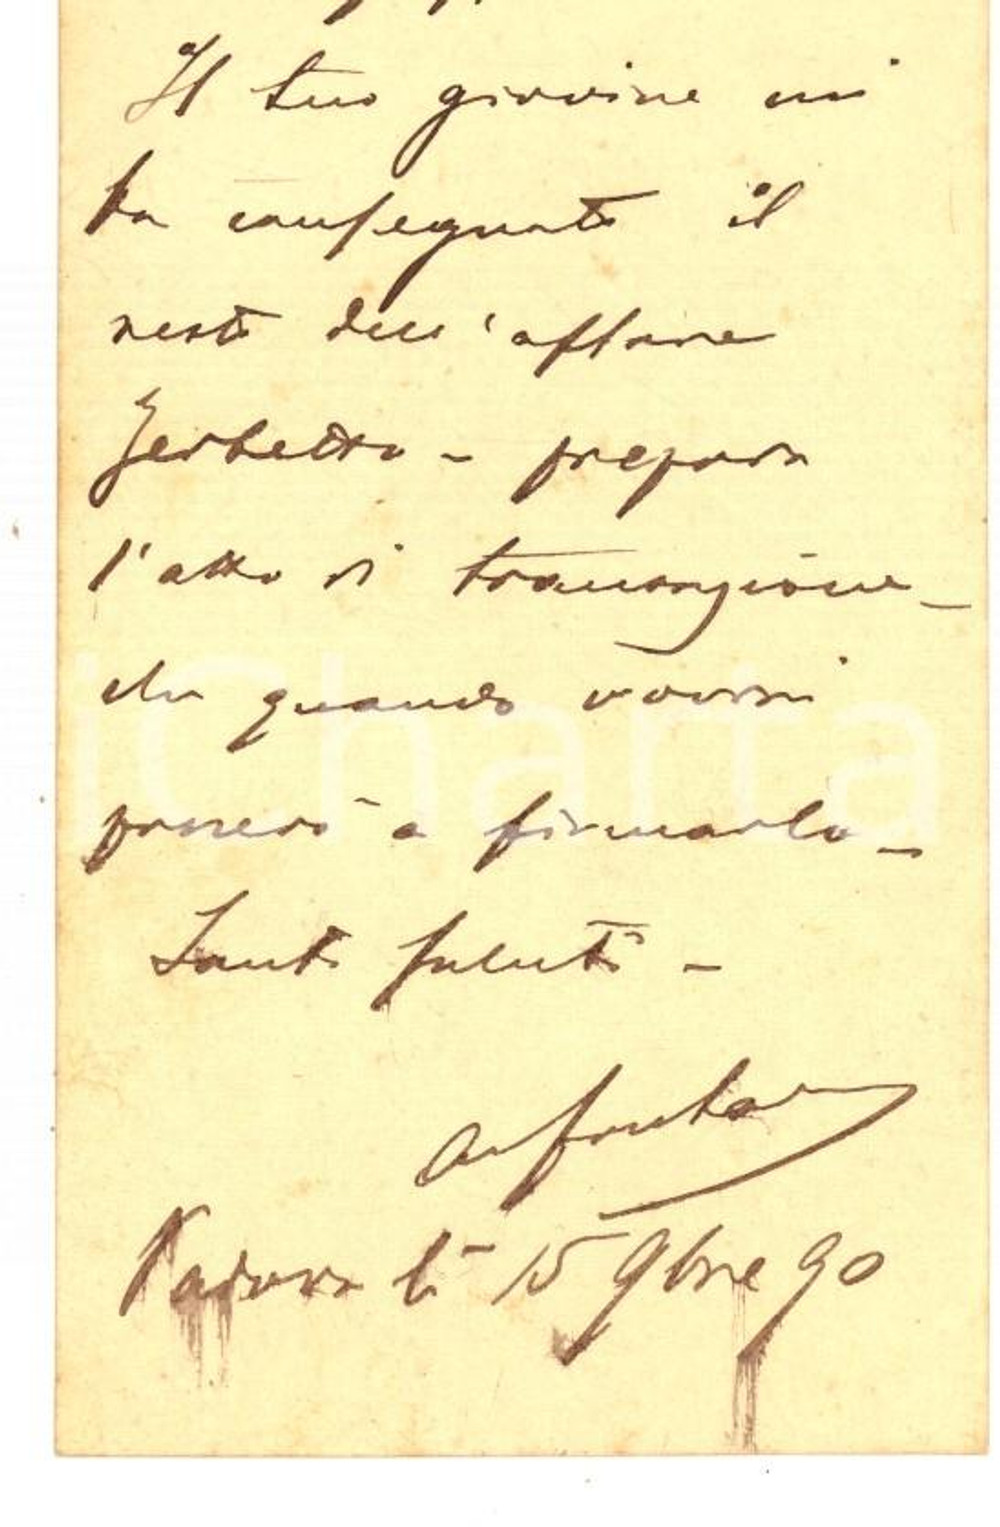 Il tuo giovine mi
ha consegnato il
resto dell'affare
Zerbetto - prepara
l'atto di transazione -
che quando vorrai
passerò a firmarlo -
Tanti saluti -
Padova li 15 9bre 90
iCharta